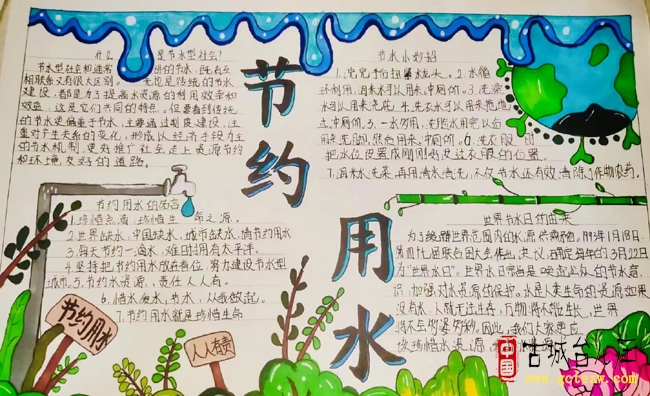 节约
用水
是节水型社会?
节水型社会和通常
的节水,既有
相联系又有很大区别。
是传统的节水
建设,都是为了提高水资源的利用效率和
效益,这是它们共同的特点,但要看到传统
的节水更偏重于节水
重对产生关系的变化,形成以经济手段为主
的节水机制
社会走上资源节约
和环境友好的道路。
节约用水的名言
1.珍惜点滴,珍惜生
之源。
2.世界缺水,中国缺水,城市缺水,请节约用水
3.每天节约一滴水,难日时用有太平洋。
4.坚持把节约用水放在首位,努力建设节水型
城市。5.节约水资源,责任人人有。
6.惜水爱水,节水,从我做起。
7.节约用水就是珍惜生命
节约用水
人人有责
节水小妙招
1.洗完手后扭紧水龙头。2.水循
环利用,淘米水可以用来冲厕所。3.洗菜
水可以用来浇花。4.洗衣水可以用来拖地
或冲厕所。5.一水多用,先脸水用完以后
用来洗脚,然后用来冲厕所。6.洗衣服时
把水位设置成刚刚好没过衣服的位置。
7.淘米水洗菜,再用清水清洗,不仅节水还有效清除了作物农药。
世界节水日的由来
为了缓解世界范围内的水源供需矛盾,1993年1月18日
第四十七届联合国大会作出决议,确定每年的3月22日
为“世界水日”。世界水日宗旨是唤起公众的节水意
识,加强对水资源的保护。水是人类生命的资源,如果
没有水,人就无法生存,万物将不能生长,世界
因此,我们大家更应
珍惜水资源
中国
古城台
www.gctezw.com